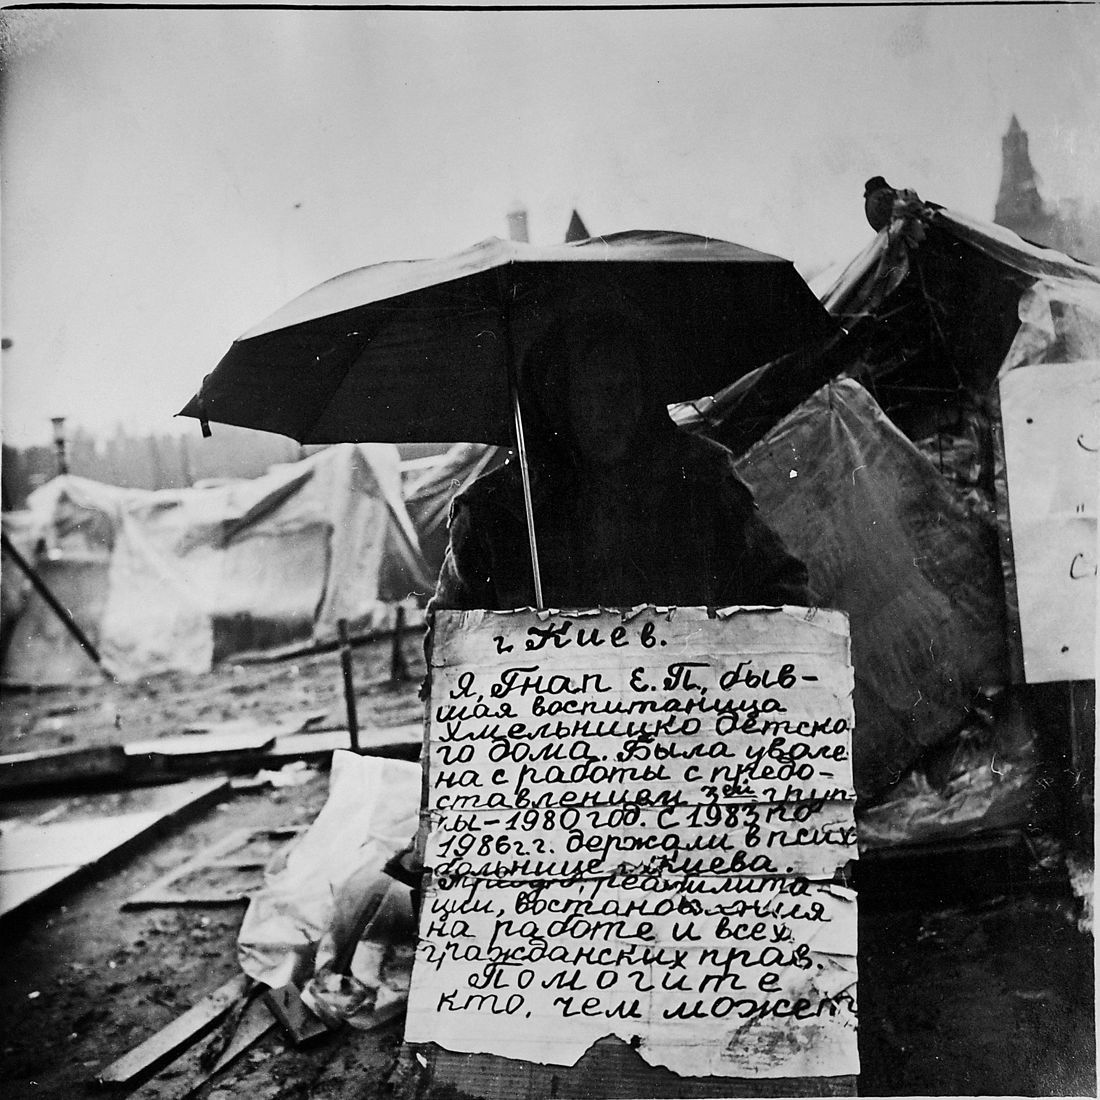 г. Киев.
Я, Гнап Е.П., быв-
шая воспитаница
Хмельницко детско
го дома. Была уволе
на с работы с предо-
ставлением 3ей груп-
пы - 1980 год. С 1983 по
1986 г.г. держали в псих
больнице г. Киева.
Требую, реабилита-
ции, востановления
на работе и всех
гражданских прав.
Помогите
кто, чем может